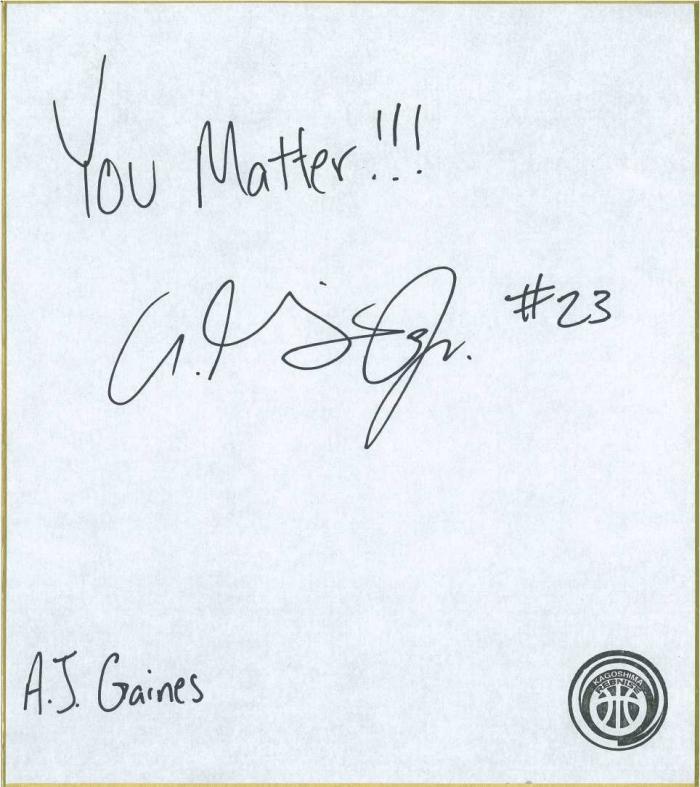 You Matter!!!
#23
A.J. Gaines
KAGOSHIMA
REBNISE